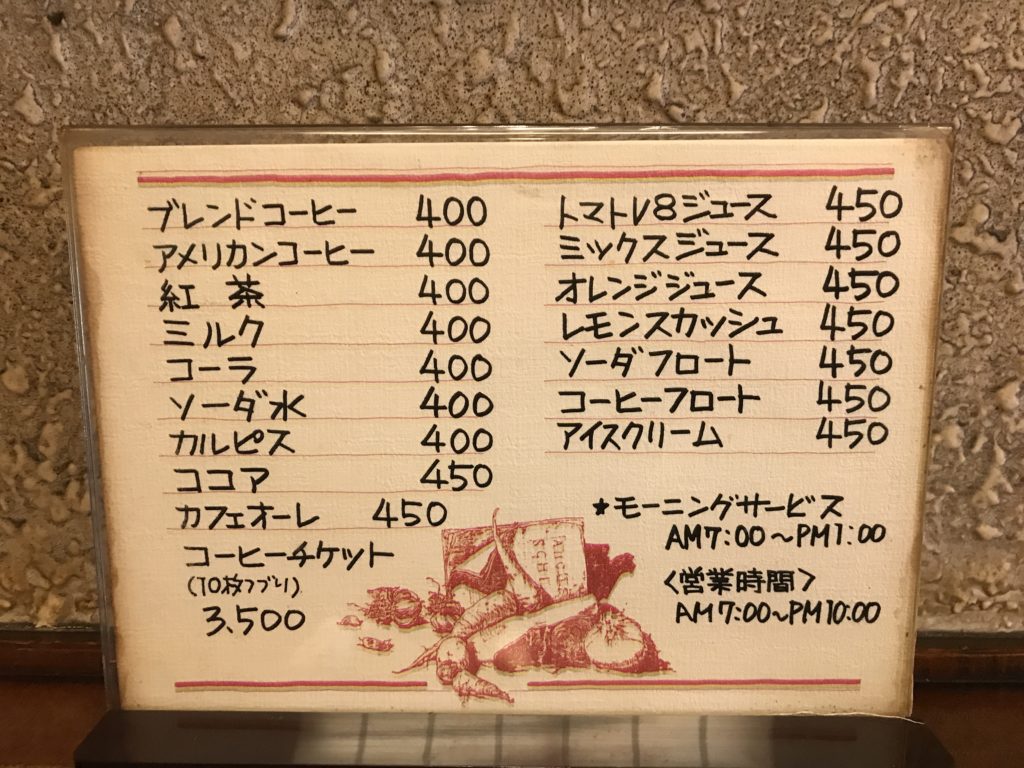 ブレンドコーヒー 400
アメリカンコーヒー 400
紅 茶 400
ミルク 400
コーラ 400
ソーダ水 400
カルピス 400
ココア 450
カフェオーレ 450
コーヒーチケット
(10枚ツヅリ)
3,500
トマトV8ジュース 450
ミックスジュース 450
オレンジジュース 450
レモンスカッシュ 450
ソーダフロート 450
コーヒーフロート 450
アイスクリーム 450
★モーニングサービス
AM7:00〜PM1:00
〈営業時間〉
AM7:00〜PM10:00